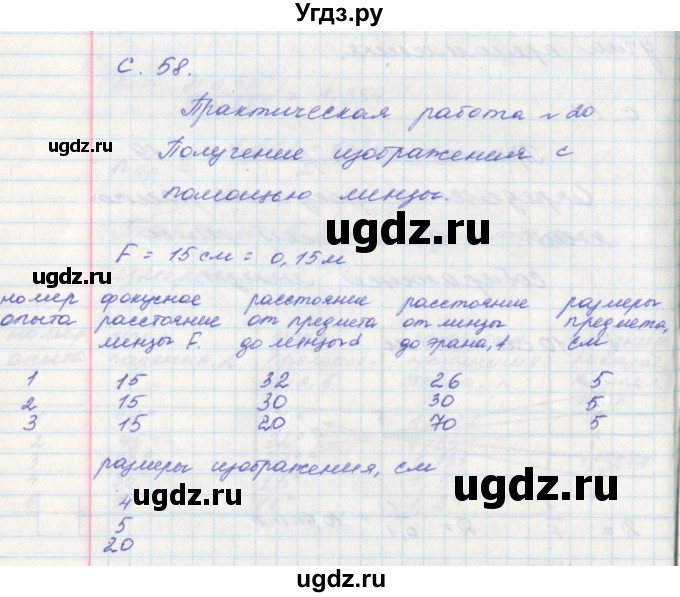 Угдз.ру
С. 58.
Практическая работа №20
Получение изображения с
помощью линзы.
F = 15 см = 0,15 м
номер опыта фокусное расстояние линзы F. расстояние от предмета до линзы d расстояние от линзы до экрана, f размеры предмета, см
1 15 32 26 5
2 15 30 30 5
3 15 20 70 5
размеры изображения, см
4
5
20
ugdz.ru
ugdz.ru
ugdz.ru
ugdz.ru
ugdz.ru
ugdz.ru
ugdz.ru
ugdz.ru
ugdz.ru
ugdz.ru